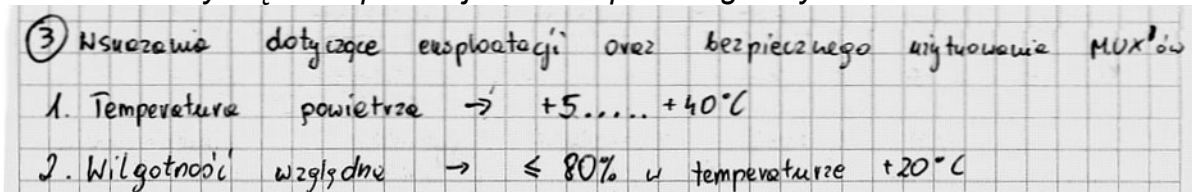 ③ Wskazania dotyczące eksploatacji oraz bezpiecznego użytkowania MUX'ów
1. Temperatura powietrza → +5..... +40°C
2. Wilgotność względna → ≤ 80% w temperaturze +20°C